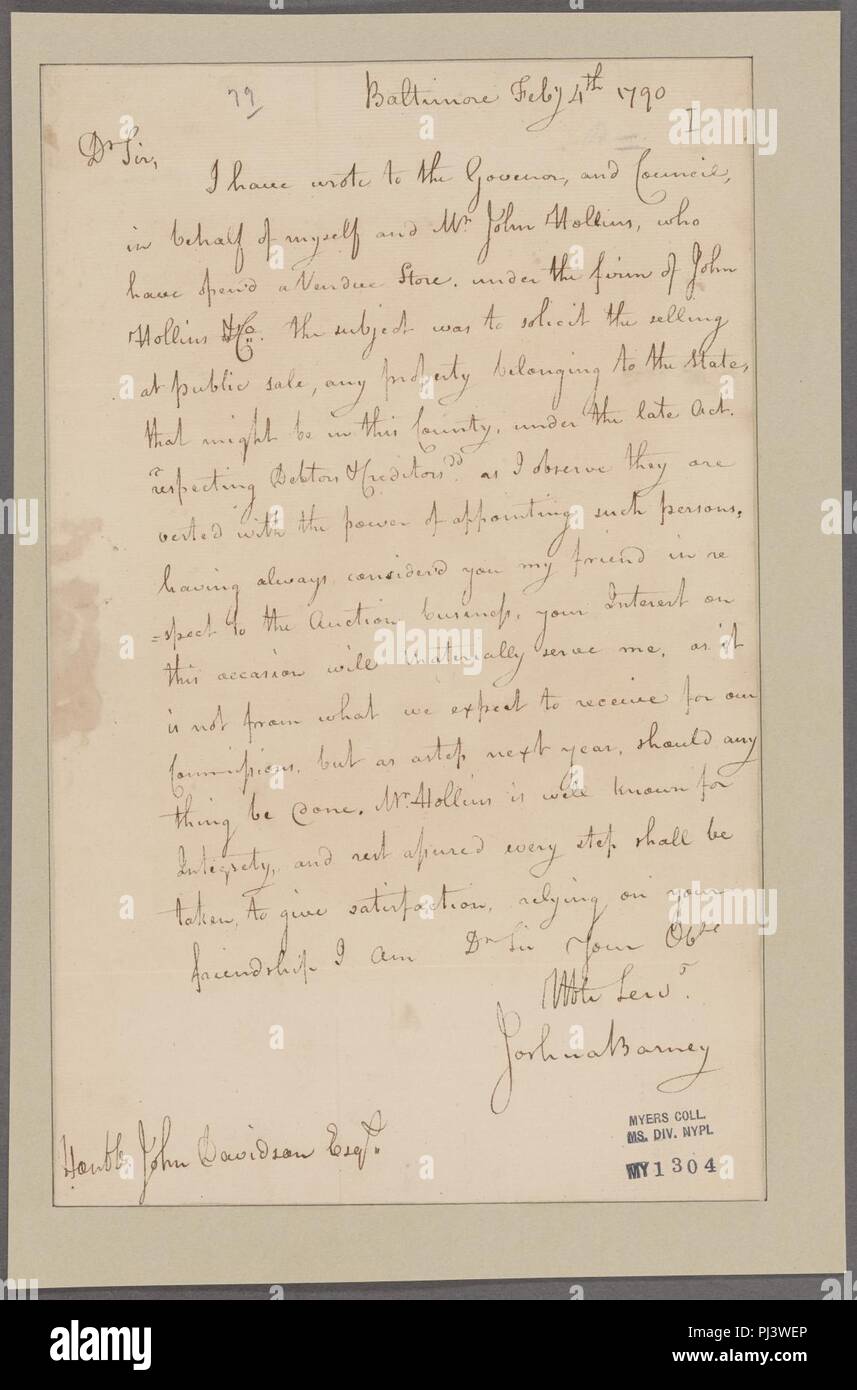 79
Baltimore Feby 4th 1790
I
Dr Sir,
I have wrote to the Govenor, and Council,
in behalf of myself and Mr. John Hollins, who
have open'd a Vendue Store. under the firm of John
Hollins & Co. the subject was to solicit the selling
at public sale, any property belonging to the State,
that might be in this County, under the late Act.
"respecting Debtors & Creditors" as I observe they are
vested with the power of appointing such persons,
having always consider'd you my friend in re
=spect to the Auction business, your Interest on
this occasion will materially serve me, as it
is not from what we expect to receive for our
Commissions, but as a step next year, should any
thing be done. Mr. Hollins is well known for
Integrety, and rest assured every step shall be
taken, to give satisfaction, relying on your
friendship I am Dr Sir Your Obt
Hble Servt.
Joshua Barney
Honble John Davidson Esqr.
MYERS COLL.
MS. DIV. NYPL
MY1304
alamy
PJ3WEP
www.alamy.com